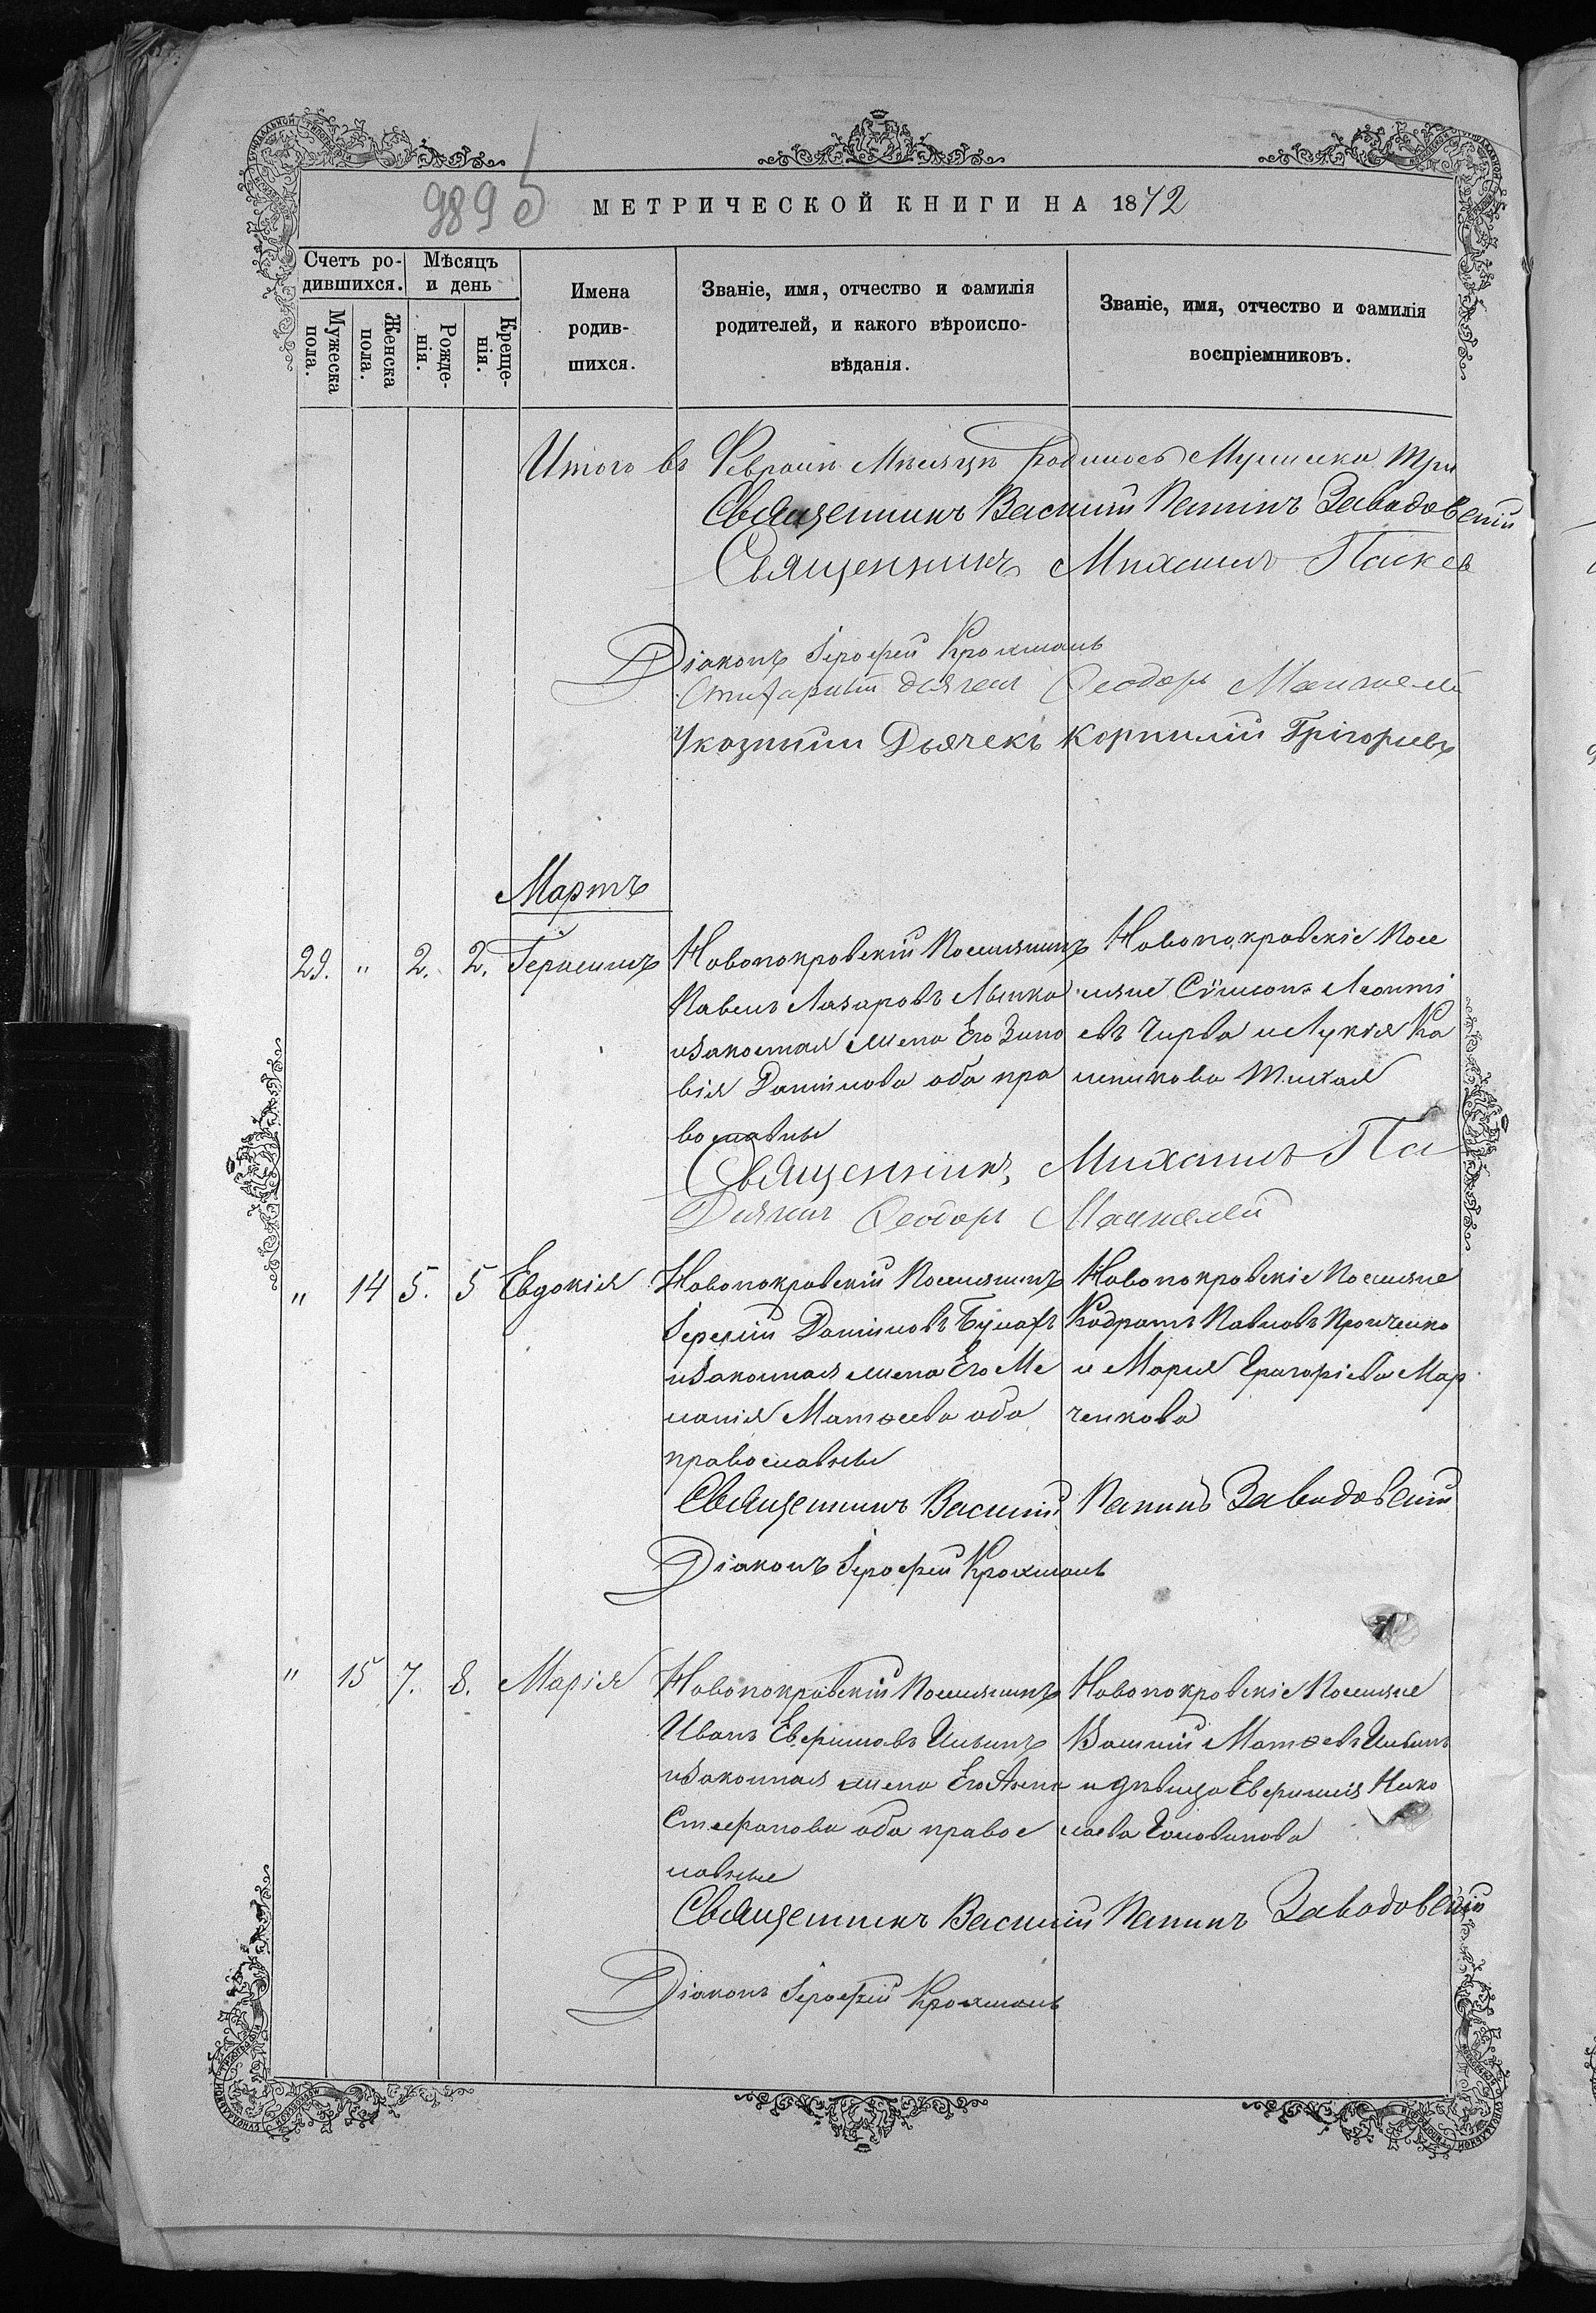 989 б
МЕТРИЧЕСКОЙ КНИГИ НА 1872
Счетъ ро-
дившихся.
Мужеска
пола.
Женска
пола.
Мѣсяцъ
и день
Рожде-
нія.
Креще-
нія.
Имена
родив-
шихся.
Званіе, имя, отчество и фамилія
родителей, и какого вѣроиспо-
вѣданія.
Званіе, имя, отчество и фамилія
воспріемниковъ.
Итого въ Февралѣ Мѣсяцѣ родилось Мужеска три
Священникъ Василій Завадовскій
Священникъ Михаилъ
Діаконъ Іерофей Крохмаль
Ѳеодоръ
Указный Дьячекъ Корнилій Григорьевъ
Мартъ
29. " 2. 2. Герасимъ
Новопокровскій Поселянинъ
Павелъ Лазаровъ
изаконная жена Его Зино
вія Данилова оба пра
вославные
Новопокровскіе Посе
ляне Сѵмеонъ Леонті
евъ Чирва и Лукія Ка
Священникъ Михаилъ Па
Ѳеодоръ
" 14 5. 5 Евдокія
Новопокровскій Поселянинъ
Іеремій Даниловъ
изаконная жена Его Ме
ланія Матѳеева оба
православные
Новопокровскіе Поселяне
Кодратъ Павловъ
и Марія Григоріева Мар
ченкова
Священникъ Василій Завадовскій
Діаконъ Іерофей Крохмаль
" 15 7. 8. Марія
Новопокровскій Поселянинъ
Иванъ Евфимовъ Ильинъ
изаконная жена Его Анна
Стефанова оба правос
лавные
Новопокровскіе Поселяне
Василій Матѳеевъ Ильинъ
и дѣвица Евфимія Нико
лаева Голованова
Священникъ Василій Завадовскій
Діаконъ Іерофей Крохмаль